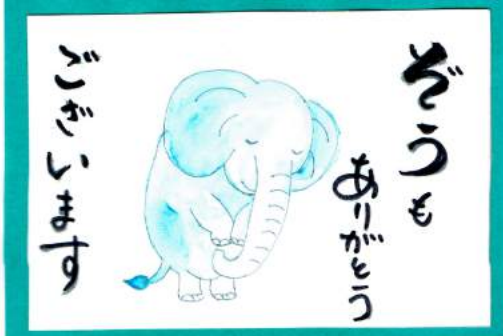 ぞうも
ありがとう
ございます